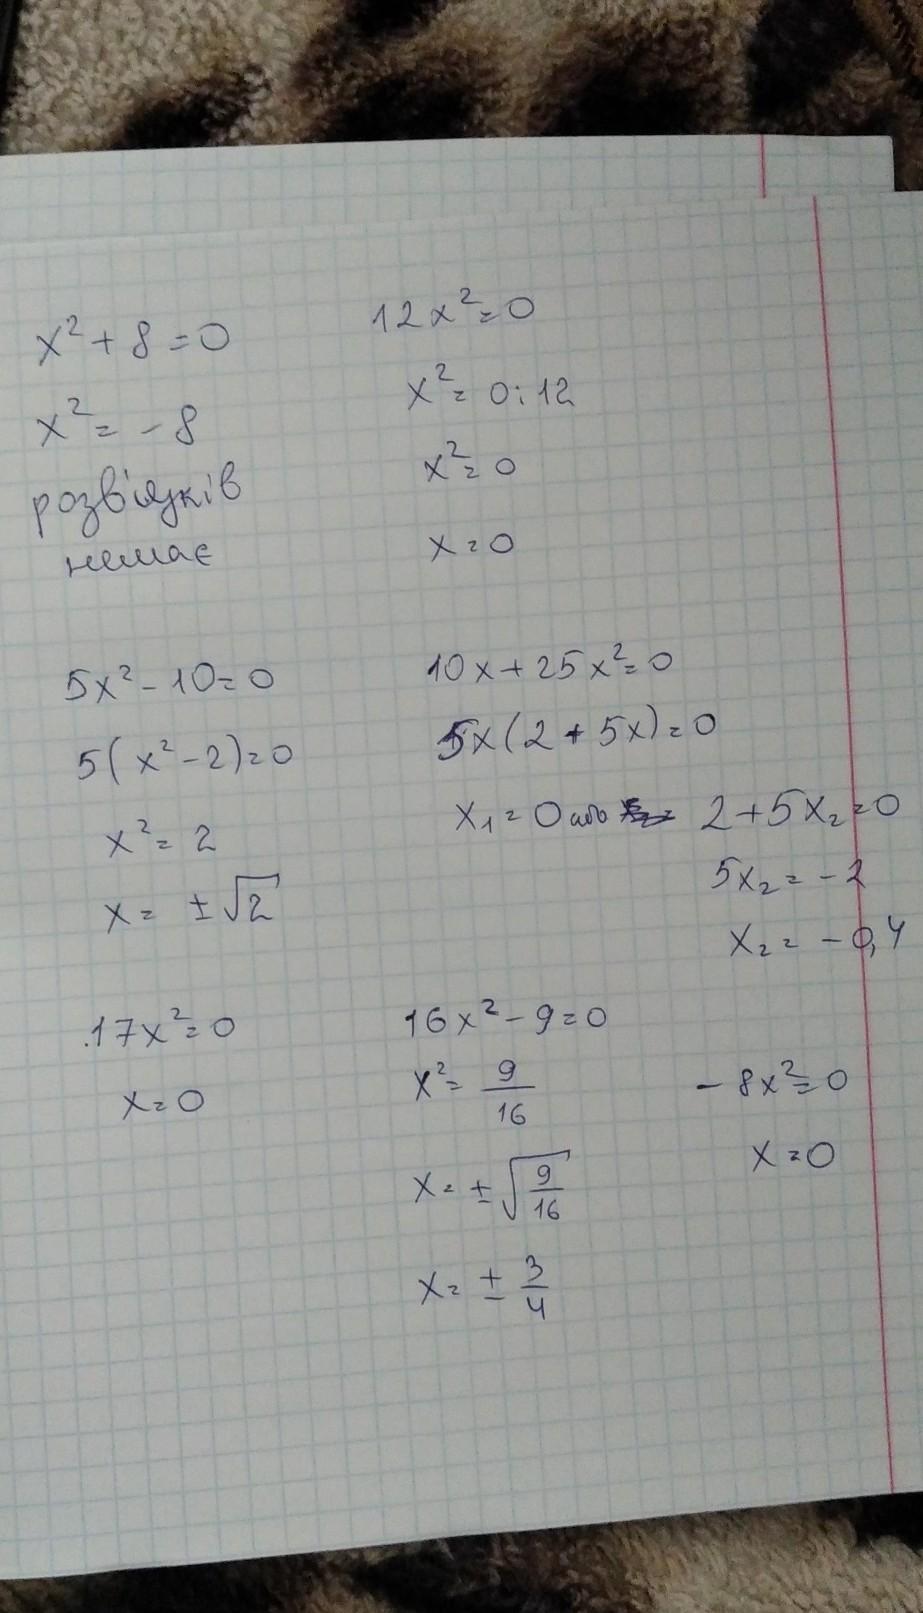 x² + 8 = 0
x² = - 8
розв'язків
немає
12x² = 0
x² = 0 : 12
x² = 0
x = 0
5x² - 10 = 0
5(x² - 2) = 0
x² = 2
x = ±√2
10x + 25x² = 0
5x(2 + 5x) = 0
x₁ = 0 або 2 + 5x₂ = 0
5x₂ = - 2
x₂ = - 0,4
17x² = 0
x = 0
16x² - 9 = 0
x² = 9/16
x = ±√(9/16)
x = ± 3/4
- 8x² = 0
x = 0